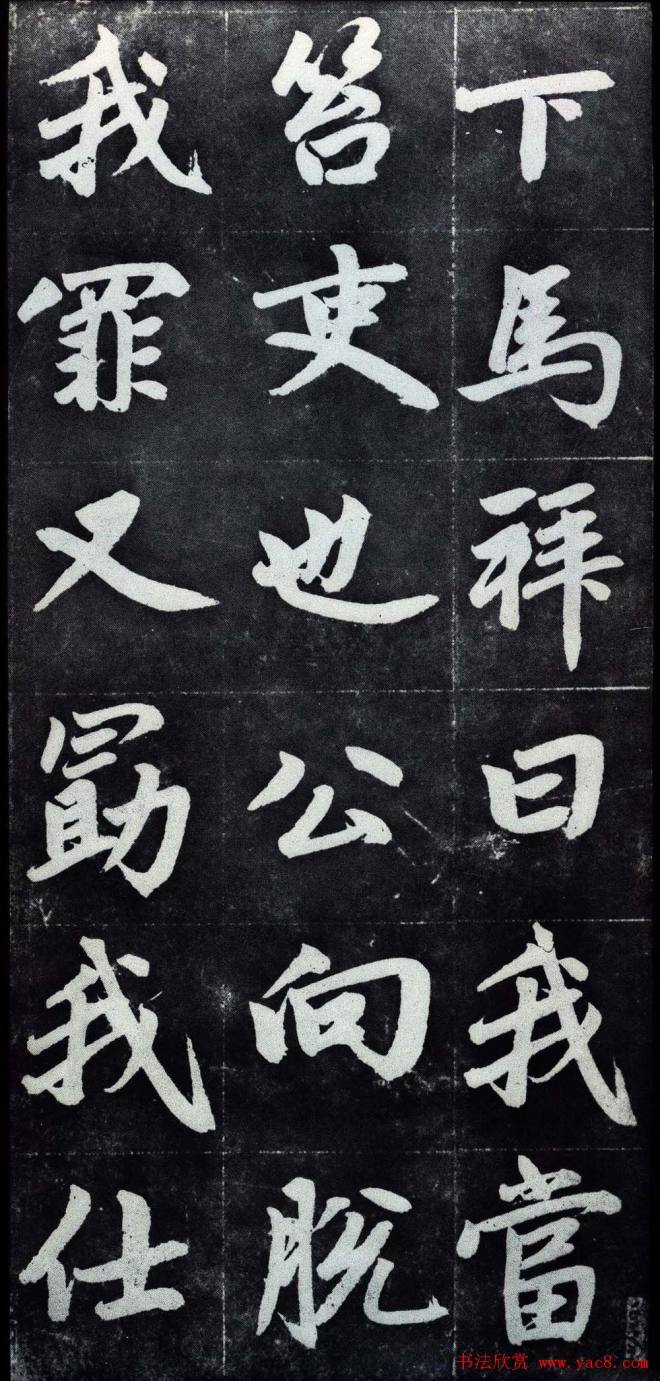 下馬拜曰我當
笞吏也公向脱
我罪又勖我仕
书法欣赏 www.yac8.com